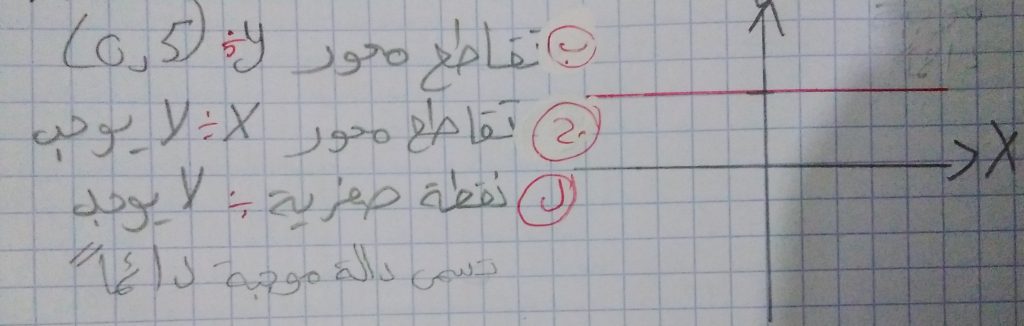 ب تقاطع محور y ÷ (0,5)
ج تقاطع محور X ÷ لا يوجد
د نقطة صفرية ÷ لا يوجد
تسمى دالة موجبة دائمًا "
X